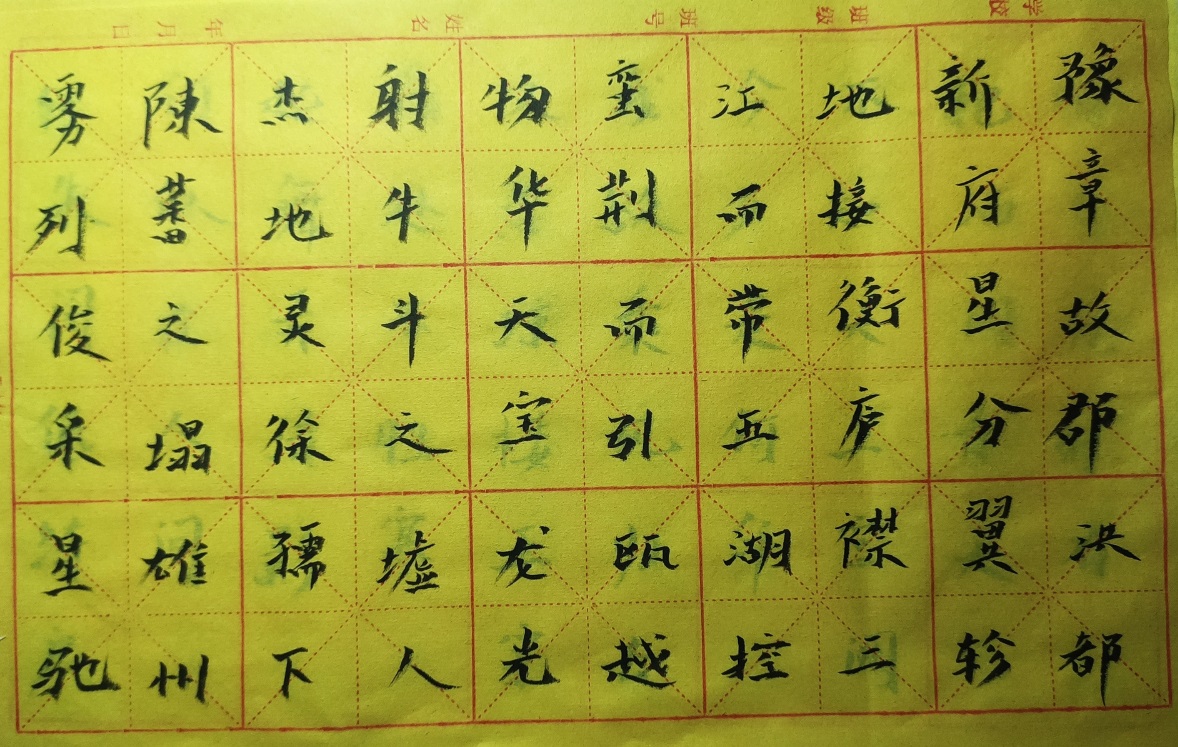 学校 班级 班号 姓名 年 月 日
豫章故郡洪都
新府星分翼轸
地接衡庐襟三
江而带五湖控
蛮荆而引瓯越
物华天宝龙光
射牛斗之墟人
杰地灵徐孺下
陳蕃之塌雄州
雾列俊采星驰